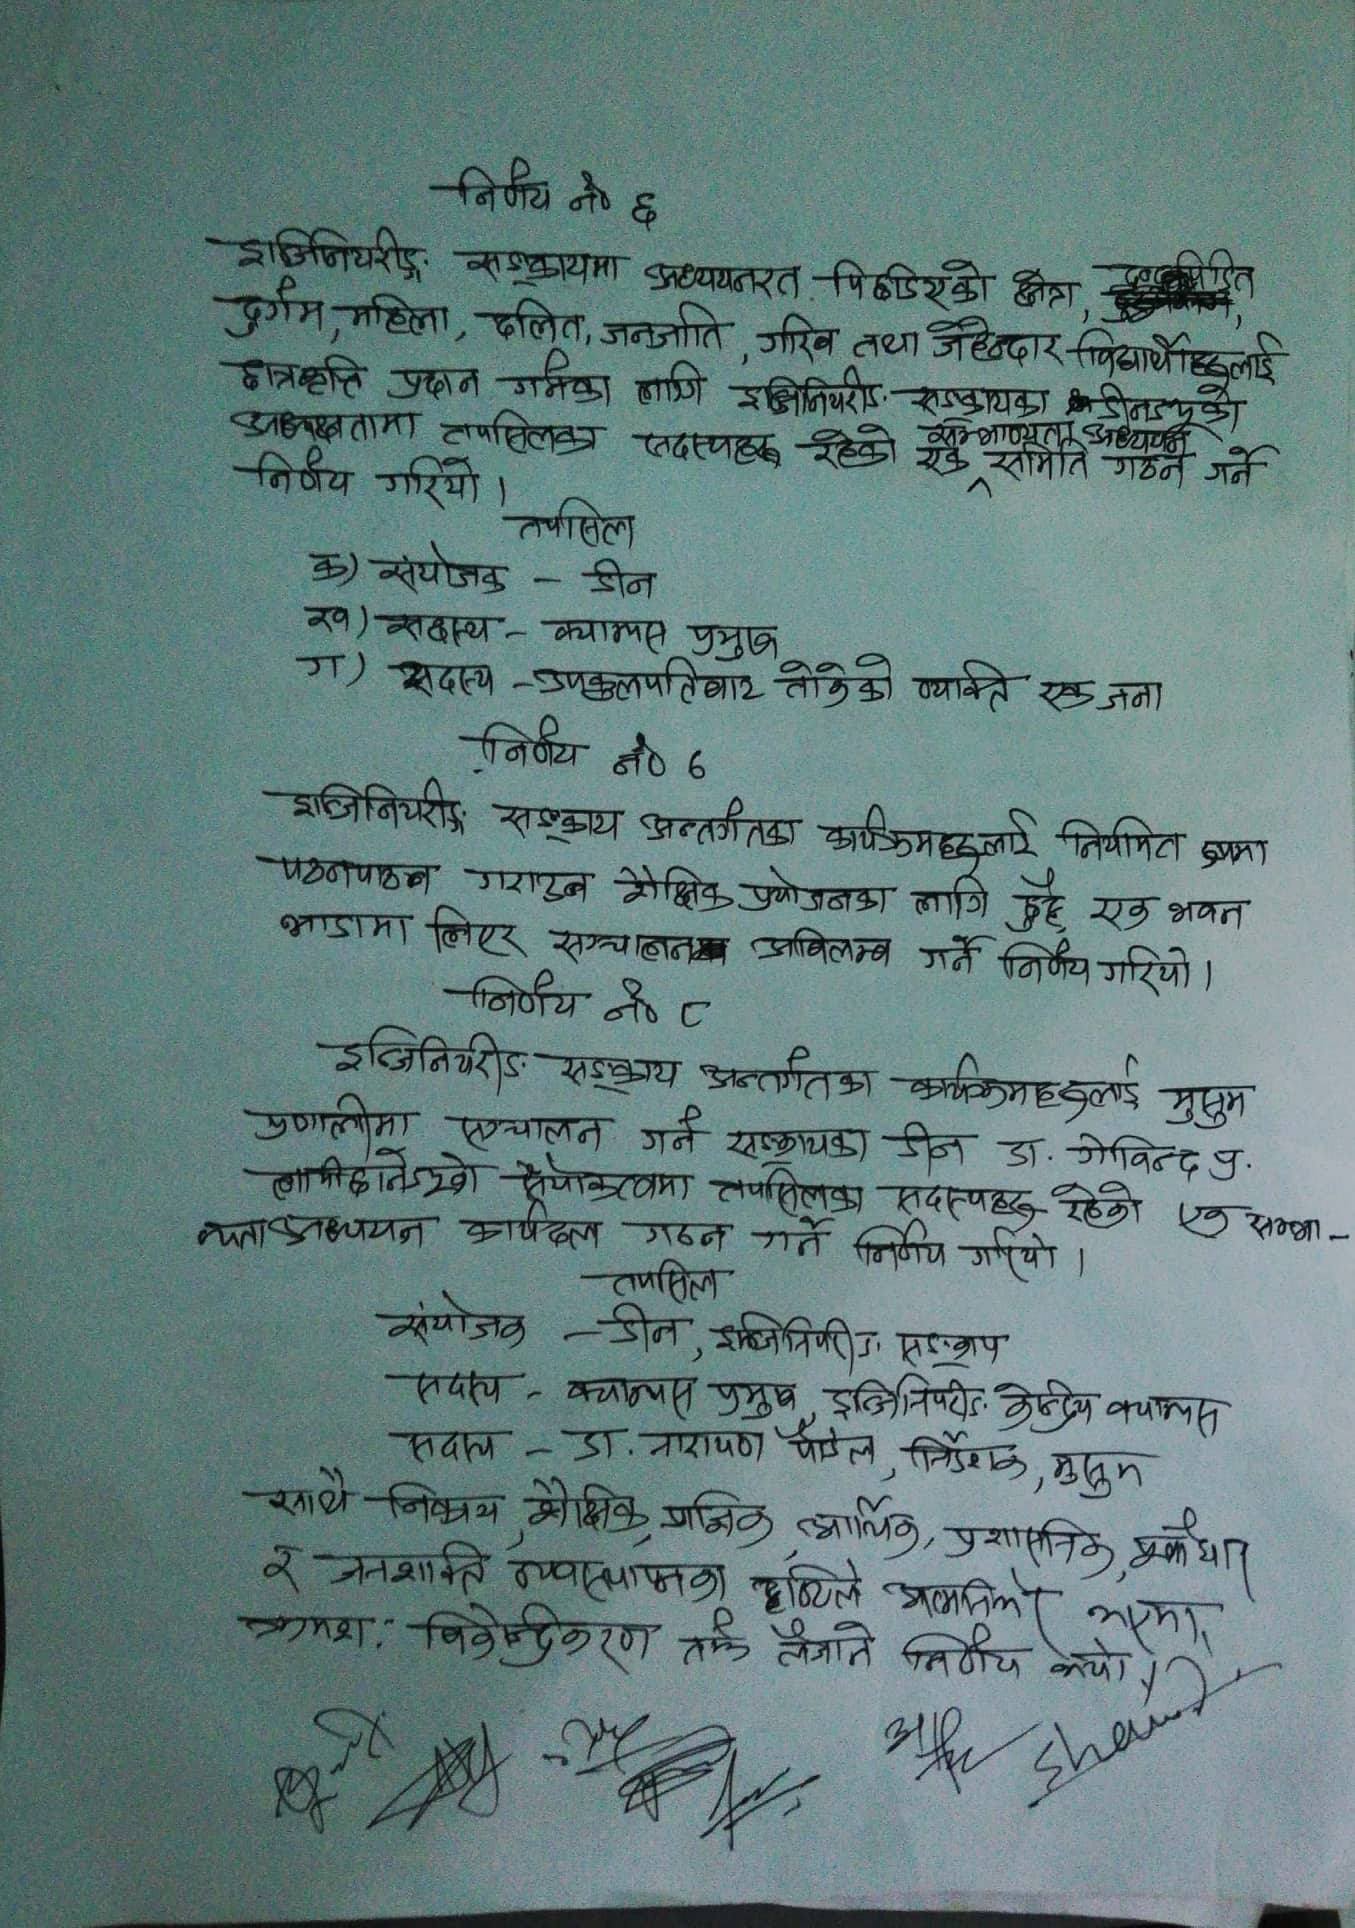 निर्णय नं० ६
इन्जिनियरीङ्ग सङ्कायमा अध्ययनरत पिछडिएको क्षेत्र, द्वन्दपिडित
दुर्गम, महिला, दलित, जनजाति, गरिब तथा जेहेन्दार विद्यार्थीहरुलाई
छात्रवृत्ति प्रदान गर्नका लागि इन्जिनियरीङ सङ्कायका डीनज्यूको
अध्यक्षतामा तपसिलका सदस्यहरु रहेको एक सम्भाव्यता अध्ययन समिति गठन गर्ने
निर्णय गरियो।
तपसिल
क) संयोजक - डीन
ख) सदस्य - क्याम्पस प्रमुख
ग) सदस्य - उपकुलपतिबाट तोकेको व्यक्ति एक जना
निर्णय नं० ७
इन्जिनियरीङ्ग सङ्काय अन्तर्गतका कार्यक्रमहरुलाई नियमित रुपमा
पठनपाठन गराउन शैक्षिक प्रयोजनका लागि छुट्टै एक भवन
भाडामा लिएर सञ्चालन अविलम्ब गर्ने निर्णय गरियो।
निर्णय नं० ८
इन्जिनियरीङ सङ्काय अन्तर्गतका कार्यक्रमहरुलाई मुसुम
प्रणालीमा सञ्चालन गर्न सङ्कायका डीन डा. गोविन्द प्र.
लामिछानेज्यूको संयोजकत्वमा तपसिलका सदस्यहरु रहेको एक सम्भा-
व्यता अध्ययन कार्यदल गठन गर्ने निर्णय गरियो।
तपसिल
संयोजक - डीन, इन्जिनियरीङ सङ्काय
सदस्य - क्याम्पस प्रमुख, इन्जिनियरीङ केन्द्रीय क्याम्पस
सदस्य - डा. नारायण पौडेल, निर्देशक, मुसुम
साथै निकाय, शैक्षिक, प्राज्ञिक, आर्थिक, प्रशासनिक,
र जनशक्ति व्यवस्थापनका दृष्टिले आत्मनिर्भर भएमा,
क्रमश: विकेन्द्रिकरण तर्फ लैजाने निर्णय भयो।